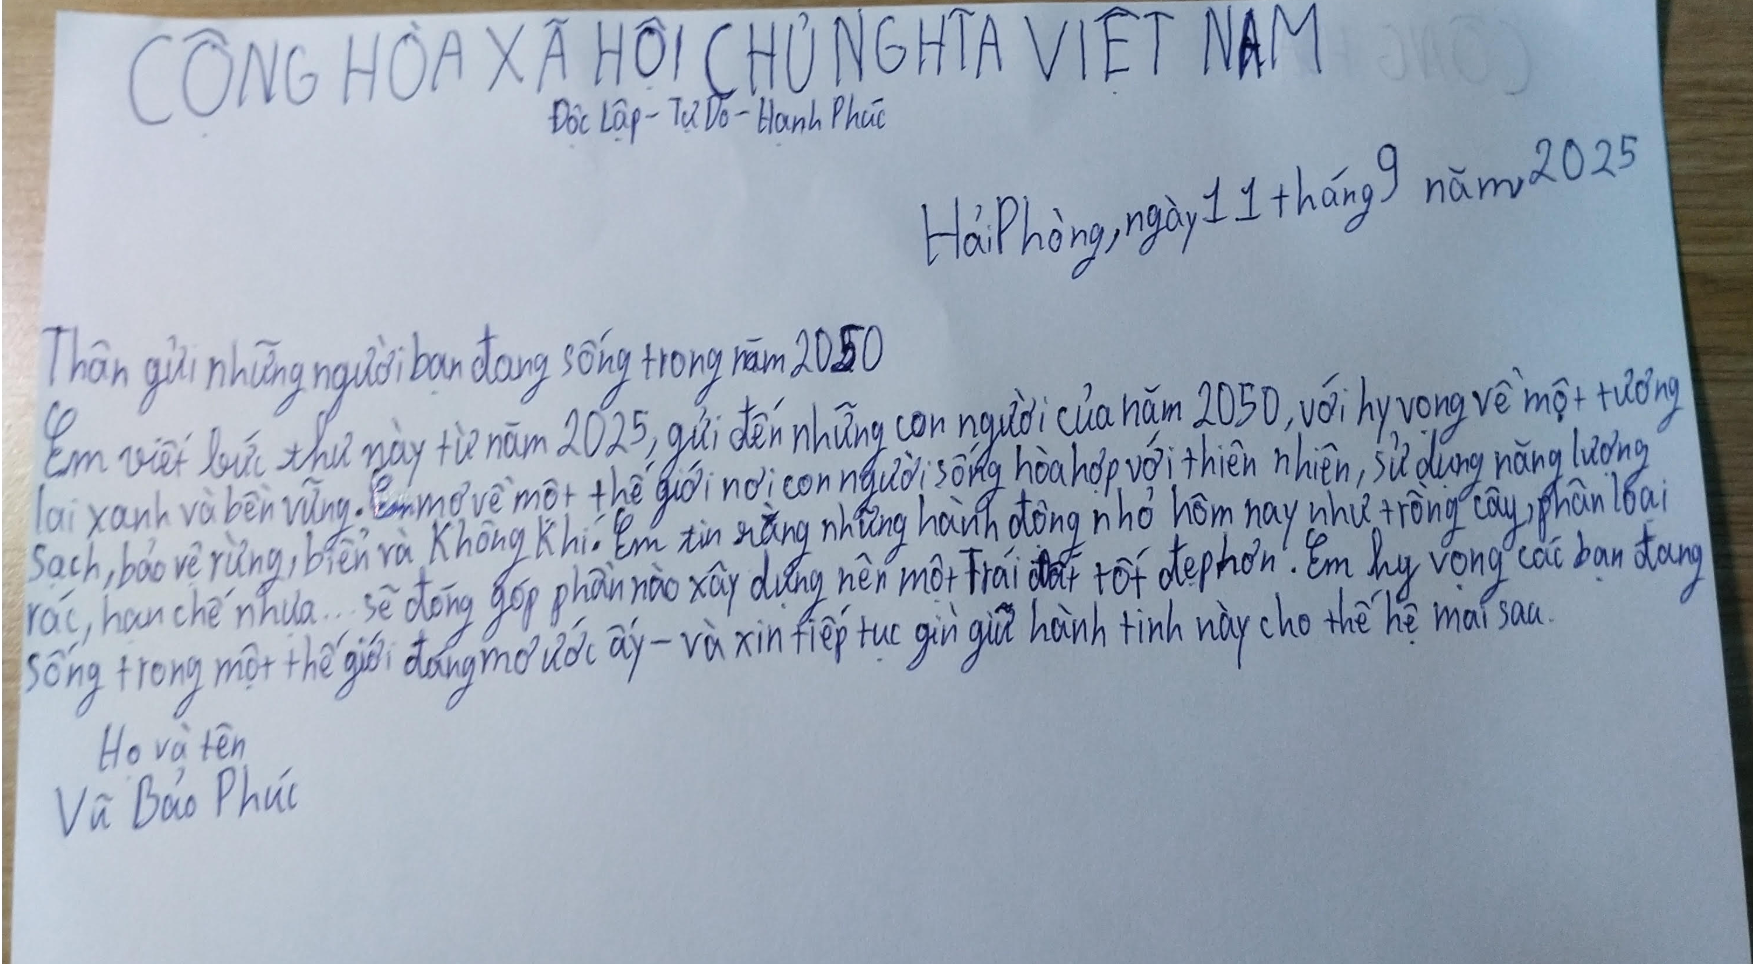 CỘNG HÒA XÃ HỘI CHỦ NGHĨA VIỆT NAM
Độc Lập - Tự Do - Hạnh Phúc
Hải Phòng, ngày 11 tháng 9 năm 2025
Thân gửi những người bạn đang sống trong năm 2050
Em viết bức thư này từ năm 2025, gửi đến những con người của năm 2050, với hy vọng về một tương
lai xanh và bền vững. Em mơ về một thế giới nơi con người sống hòa hợp với thiên nhiên, sử dụng năng lượng
sạch, bảo vệ rừng, biển và Không Khí. Em tin rằng những hành động nhỏ hôm nay như trồng cây, phân loại
rác, hạn chế nhựa... sẽ đóng góp phần nào xây dựng nên một Trái đất tốt đẹp hơn. Em hy vọng các bạn đang
sống trong một thế giới đáng mơ ước ấy - và xin tiếp tục gìn giữ hành tinh này cho thế hệ mai sau.
Họ và tên
Vũ Bảo Phúc